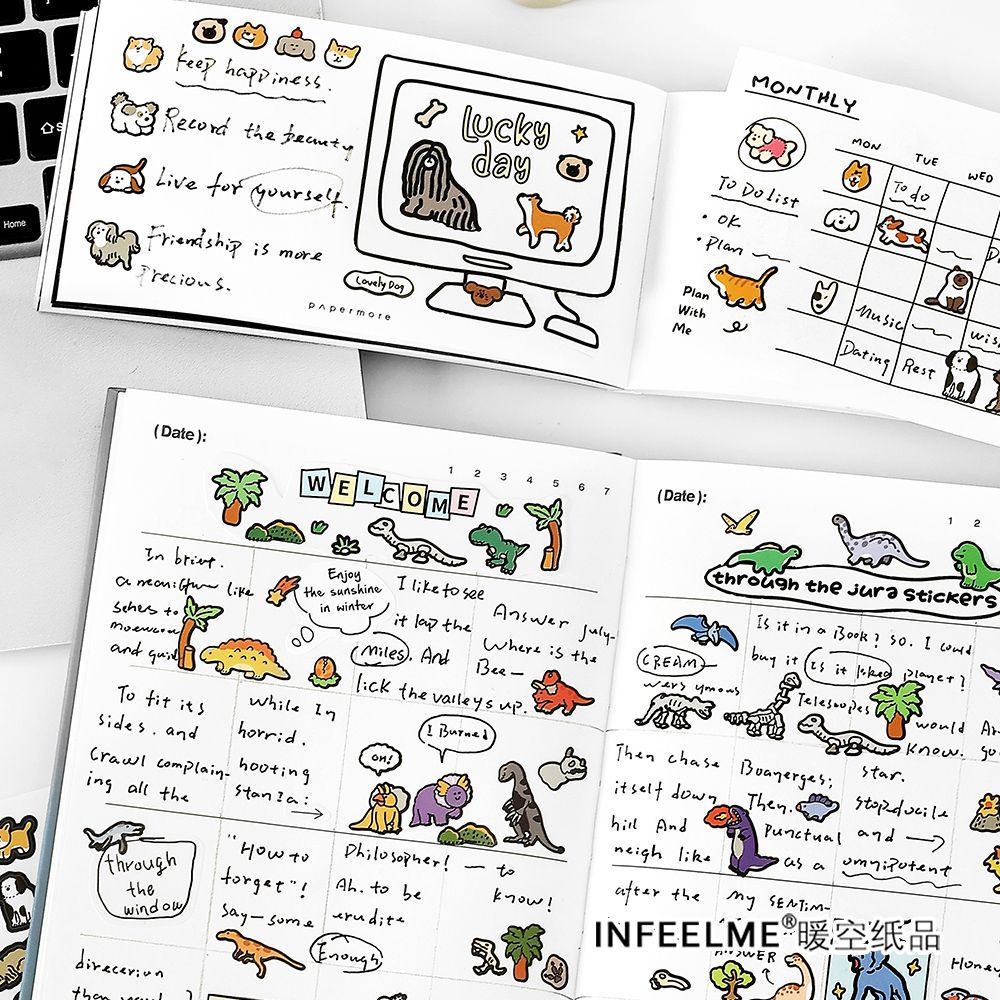 Home
Keep happiness.
Record the beauty
Live for yourself.
Friendship is more
Precious.
Lucky
day
Lovely Dog
PAPERmore
MONTHLY
MON TUE WED
To Do list
To do
• OK
• Plan
Plan
With
Me
Music
Dating Rest
(Date):
1 2 3 4 5 6 7
WELCOME
In brief.
a
like
to
and
Enjoy
the sunshine
in winter
I like to see
it lap the
miles. And
lick the valleys up.
Answer July-
Where is the
Bee-
To fit its
sides. and
Crawl complain-
ing all the
while In
horrid.
hooting
stanza:
oh!
I Burned
through
the
window
"How to
forget"!
say-some
Philosopher! - to
Ah. to be
erudite
Enough
know!
direcerion
(Date):
1 2
through the jura stickers
CREAM
Is it in a Book? So. I could
buy it Is it liked planet?
Telescopes
would
know.
Then chase
itself down
hill And
neigh like
Boanerges;
Then.
punctual
as a
star.
stopdocile
and
omnipotent
after the
my SENTIM-
ANSWER
Honey
INFEELME®暖空纸品